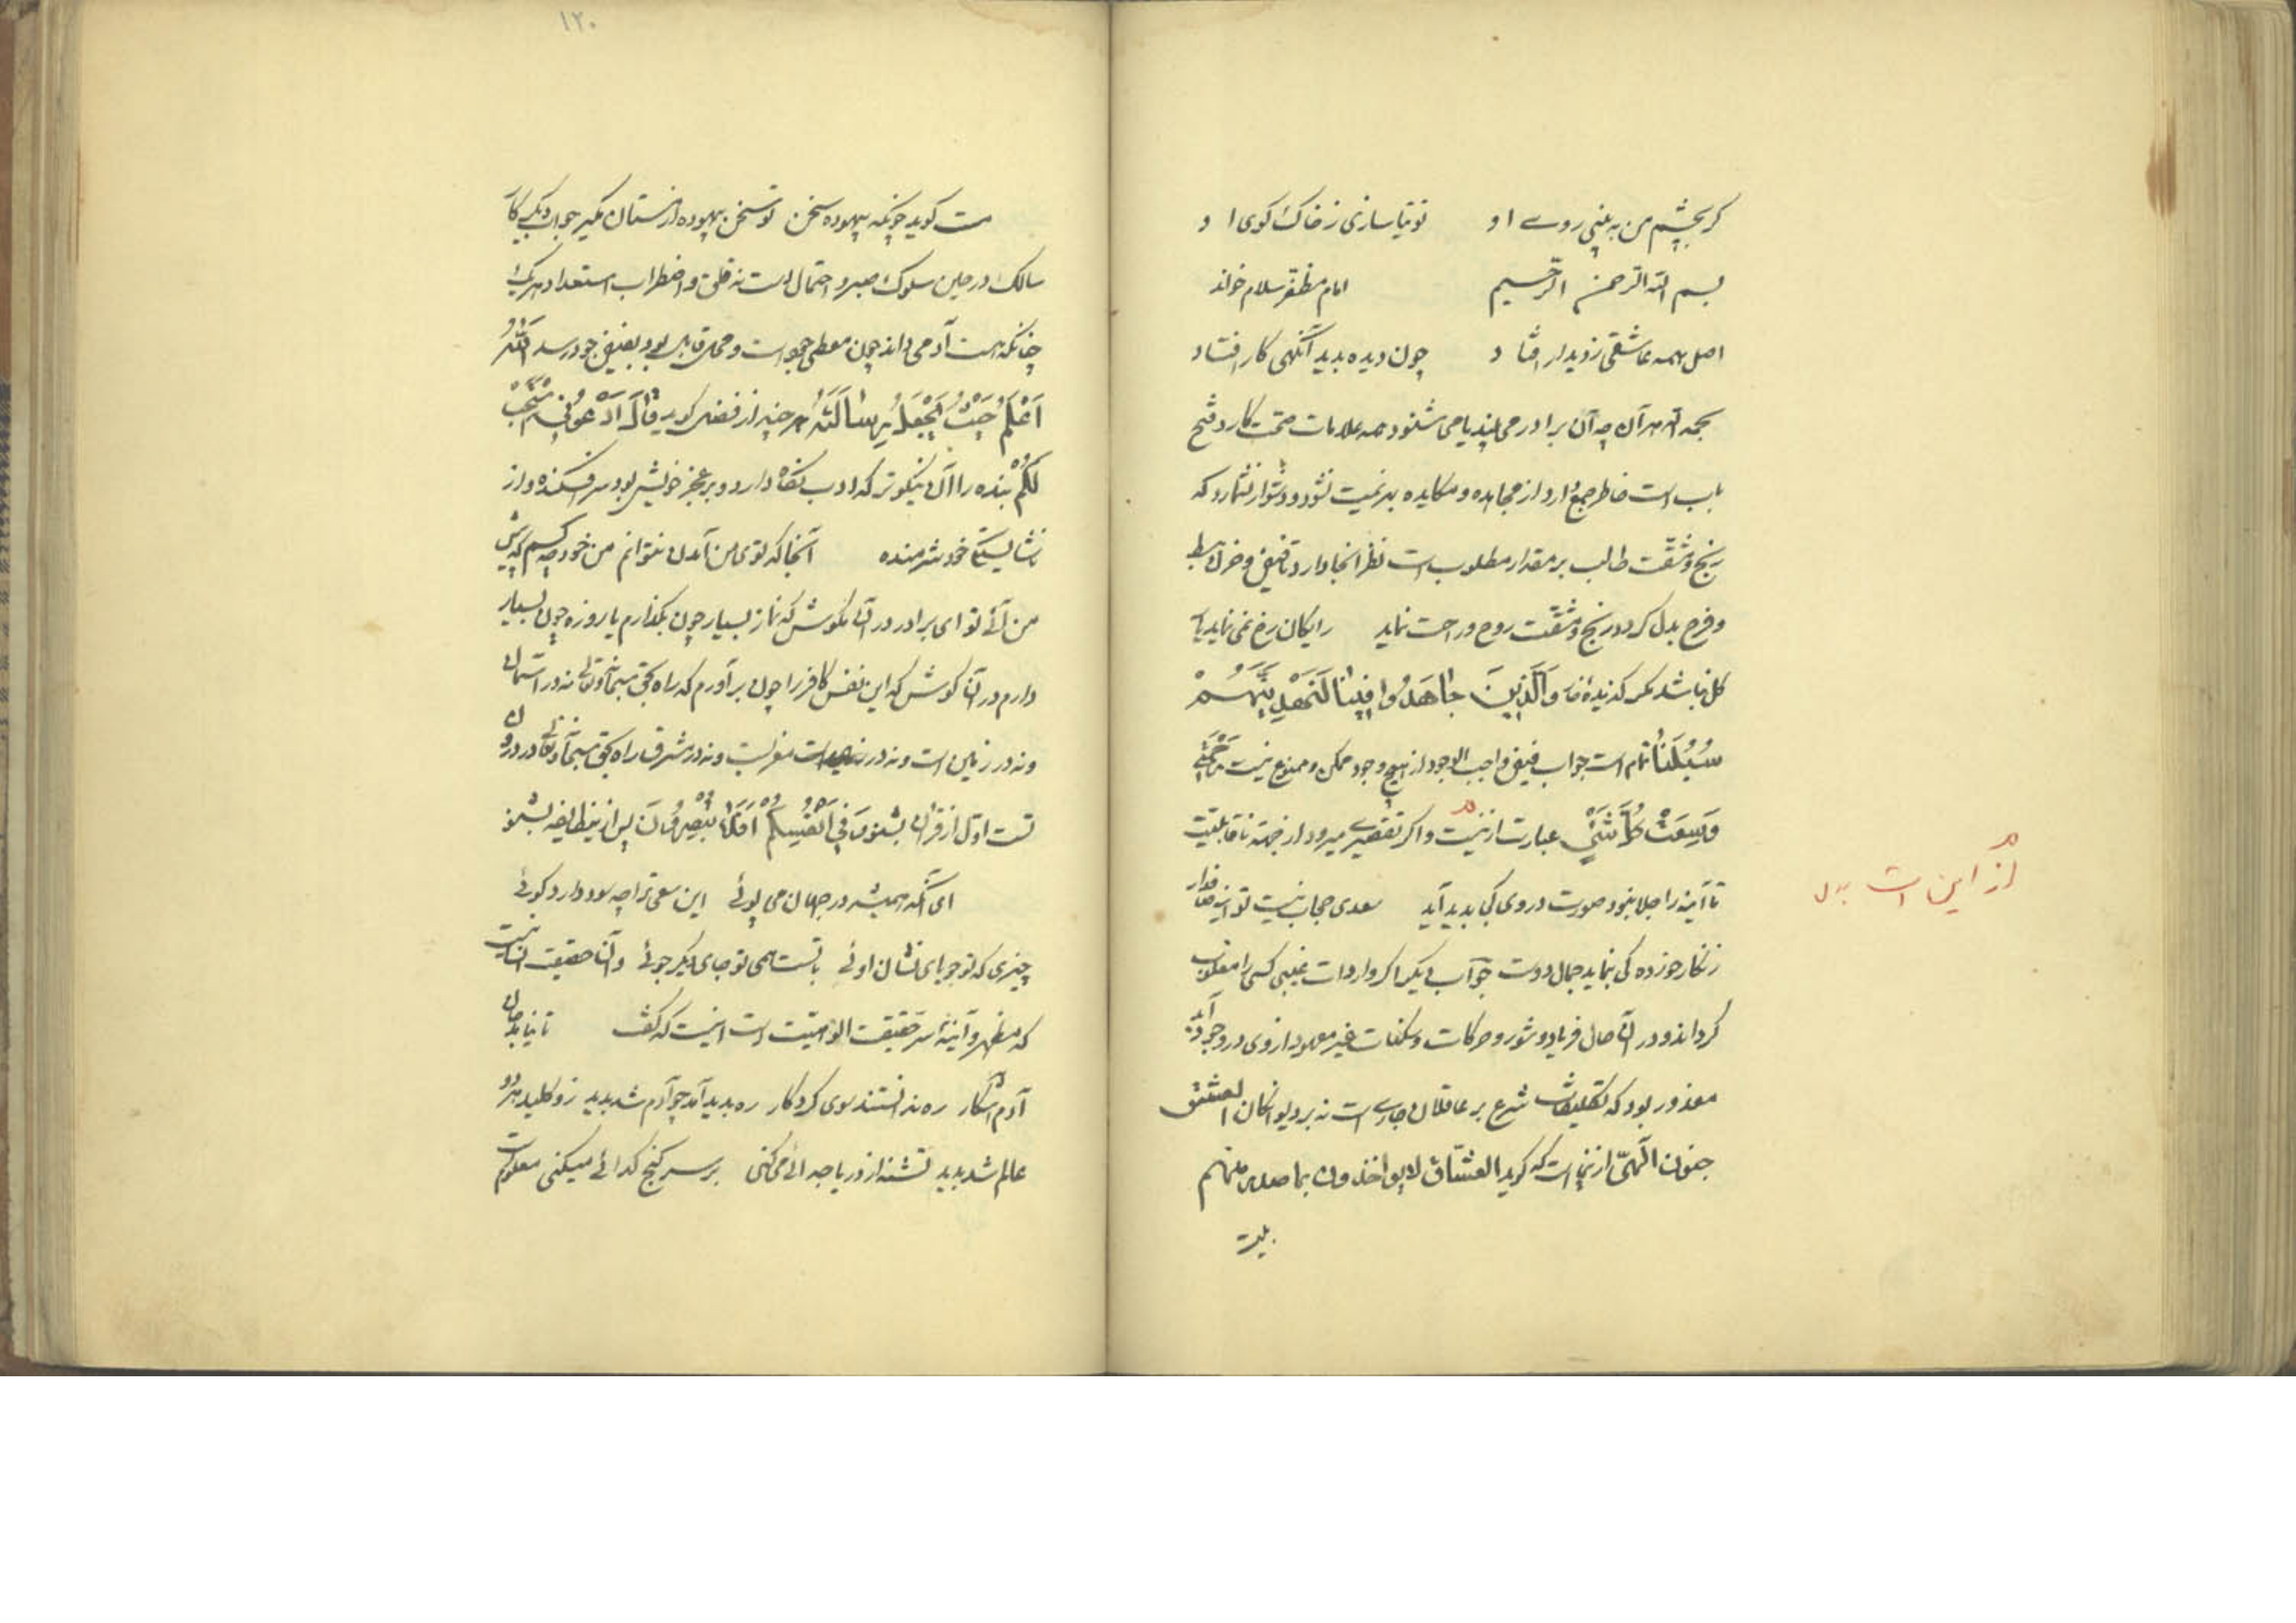 کر بچشم من ببینی روے او توتیا سازی ز خاک کوی او
بسم الله الرحمن الرحیم امام مظفر سلام خواند
اصل همه عاشقی ز دیدار افتاد چون دیده بدید آنکهی کار افتاد
بحمد الله هر آن چه آن برادر می بیند یا می شنود همه علامات صحت کار و فتح
باب است خاطر جمع دارد از مجاهده و مکابده بر نمیت نشود و دشوار نشمارد که
رنج و مشقت طالب بر مقدار مطلوب است نظر انجا دارد تا قبض و حزن ببسط
و فرح بدل کردد رنج و مشقت روح و راحت نماید رایکان رخ نمی نماید یار
کل نباشد مکر کزیدهٔ خار وَالَّذِینَ جَاهَدُوا فِینَا لَنَهْدِیَنَّهُمْ
سُبُلَنَا تمام است جواب فیض واجب الوجود از هیچ وجود ممکن و ممنوع نیست رَحْمَتِی
وَسِعَتْ کُلَّ شَیْءٍ عبارت ازینست و اکر تقصیرے میرود از جهة ناقابلیت
تا آینه را جلا نبود صورت در وی کی بدید آید سعدی حجاب نیست تو آینه صاف دار
زنکار خورده کی بنماید جمال دوست جواب دیکر اکر واردات غیبی کسی را مغلوب
کرداند و در آن حال فریاد و شور و حرکات و سکنات غیر معهود از وی در وجود آید
معذور بود که تکلیفات شرع بر عاقلان جارے است نه بر دیوانکان العشق
جنون الهی ازینجا است که کوید العشاق لا یواخذون بما صدر منهم
بیت
از این است بدل
١٢٠
مست کوید چونکه بیهوده سخن تو سخن بیهوده از مستان مکیر جواب دیکر کار
سالک در حین سلوک صبر و احتمال است نه قلق و اضطراب استعداد هر یک را
چنانکه هست آدمی داند چون معطی جواد است و محل قابل بود بفیض خود رسد اَللهُ
اَعْلَمُ حَیْثُ یَجْعَلُ رِسَالَتَهُ هر چند از فضل کوید قَالَ ادْعُونِی اَسْتَجِبْ
لَکُمْ بنده را آن نیکوتر که ادب نکاه دارد و بر عجز خویش بود سر افکنده و از
ناشایستکی خود شرمنده آنجا که توی من آمدن نتوانم من خود چه کسم که پیش
من آئی تو ای برادر در آن مکوش که نماز بسیار چون بکذارم یا روزه چون بسیار
دارم در آن کوش که این نفس کافر را چون بر آورم که راه بحق سبحانه و تعالی نه در آسمان
و نه در زمین است و نه در مغربست و نه در مشرق راه بحق سبحانه و تعالی در درون
تست اول از قران بشنو وَفِی اَنْفُسِکُمْ اَفَلَا تُبْصِرُونَ پس ازین طایفه بشنو
ای آنکه همیشه در جهان می پوئی این سعی ترا چه سود دارد کوئی
چیزی که تو جویای نشان اوئی با تست همی تو جای دیکر جوئی و آن حقیقت انسانیت
که مظهر و آینهٔ سر حقیقت الوهیت است اینست که کفت تا نیامد جان
آدم آشکار ره ندانستند سوی کردکار ره بدید آمد چو آدم شد بدید زو کلید هر دو
عالم شد بدید تشنه از دریا جدائی می کنی بر سر کنج کدائی میکنی معلوم است